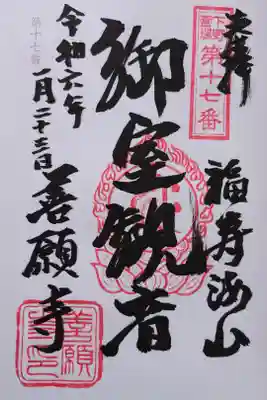 奉拝
第十七番
福寿海山
御室観音
第十七番
令和六年
一月二十三日
善願寺
善願寺印